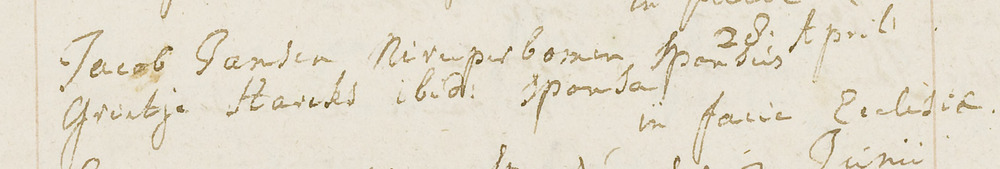 in facie
Jacob Jansen Nieuper bomen Sponsus 28. April
Grietje Harcks ibid: sponsa
in facie Ecclesiæ.
Junii